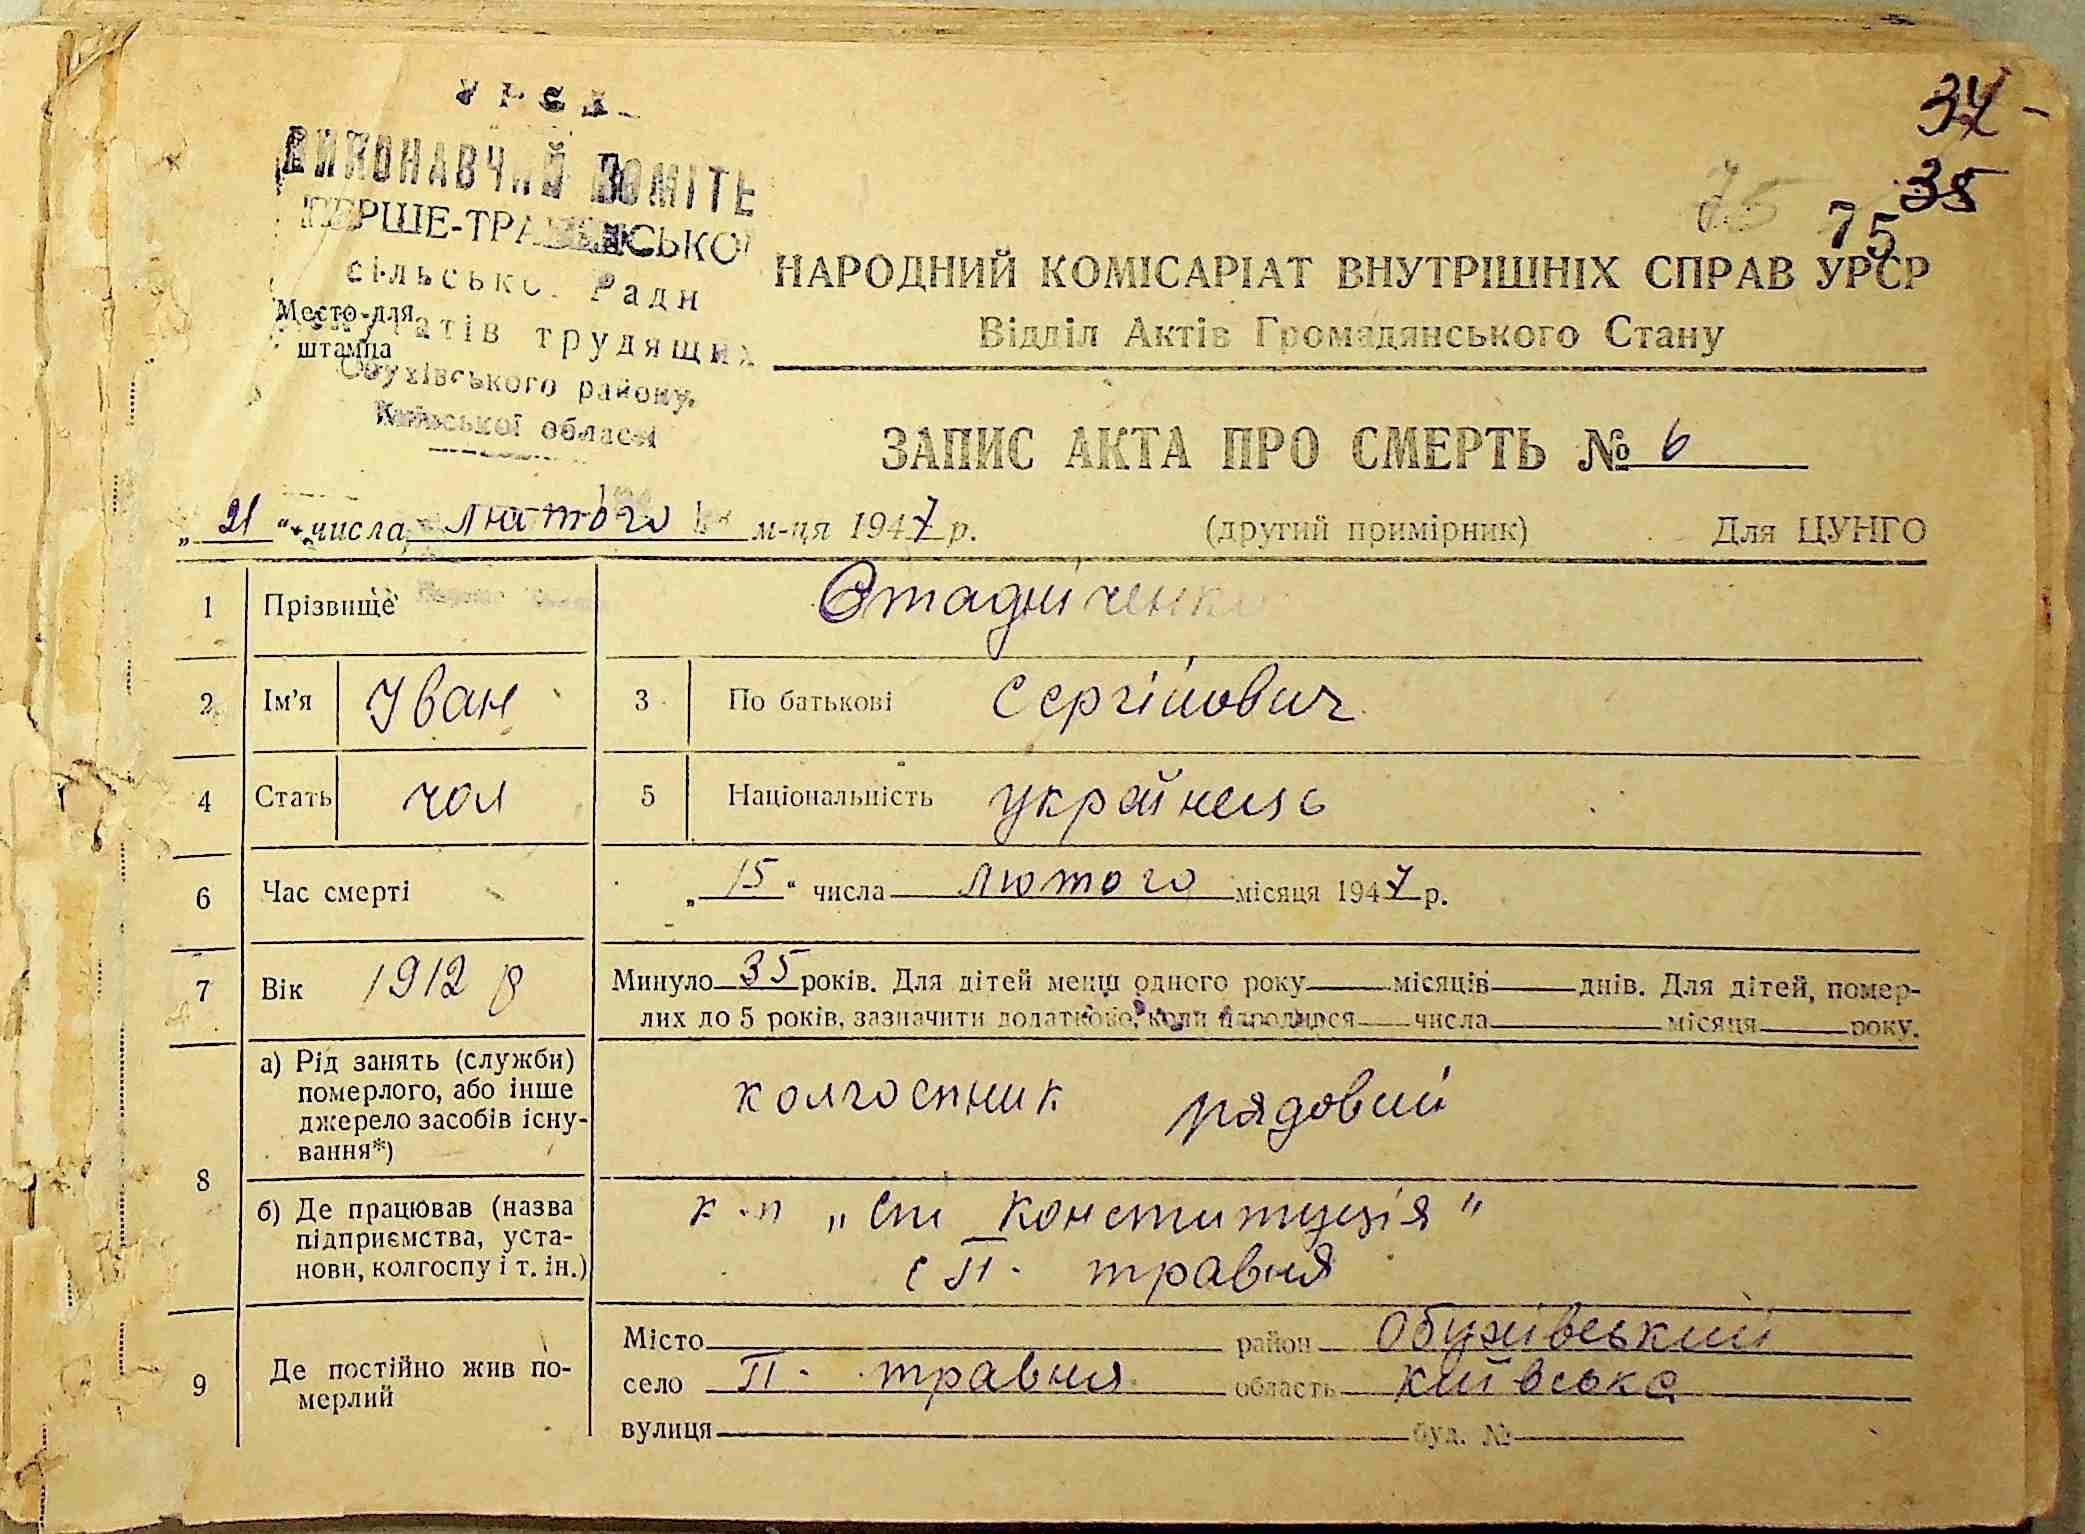 УРСР
ВИКОНАВЧИЙ КОМІТЕ
ПЕРШЕ-ТРАВЕНСЬКОЇ
сільської Ради
депутатів трудящих
Обухівського району,
Київської області
Место для
штампа
34 -
35
75
75
НАРОДНИЙ КОМІСАРІАТ ВНУТРІШНІХ СПРАВ УРСР
Відділ Актів Громадянського Стану
ЗАПИС АКТА ПРО СМЕРТЬ № 6
„ 21 “ числа лютого м-ця 1947 р. (другий примірник) Для ЦУНГО
1 Прізвище Стадніченко
2 Ім’я Іван 3 По батькові Сергійович
4 Стать чол 5 Національність українець
6 Час смерті „ 15 “ числа лютого місяця 1947 р.
7 Вік 1912 р Минуло 35 років. Для дітей менш одного року місяців днів. Для дітей, помер-
лих до 5 років, зазначити додатково, коли народився числа місяця року.
8 а) Рід занять (служби)
померлого, або інше
джерело засобів існу-
вання*)
колгоспник рядовий
б) Де працював (назва
підприємства, уста-
нови, колгоспу і т. ін.)
к-п „Ст Конституція“
с П. травня
9 Де постійно жив по-
мерлий
Місто район Обухівський
село П. травня область київська
вулиця буд. №